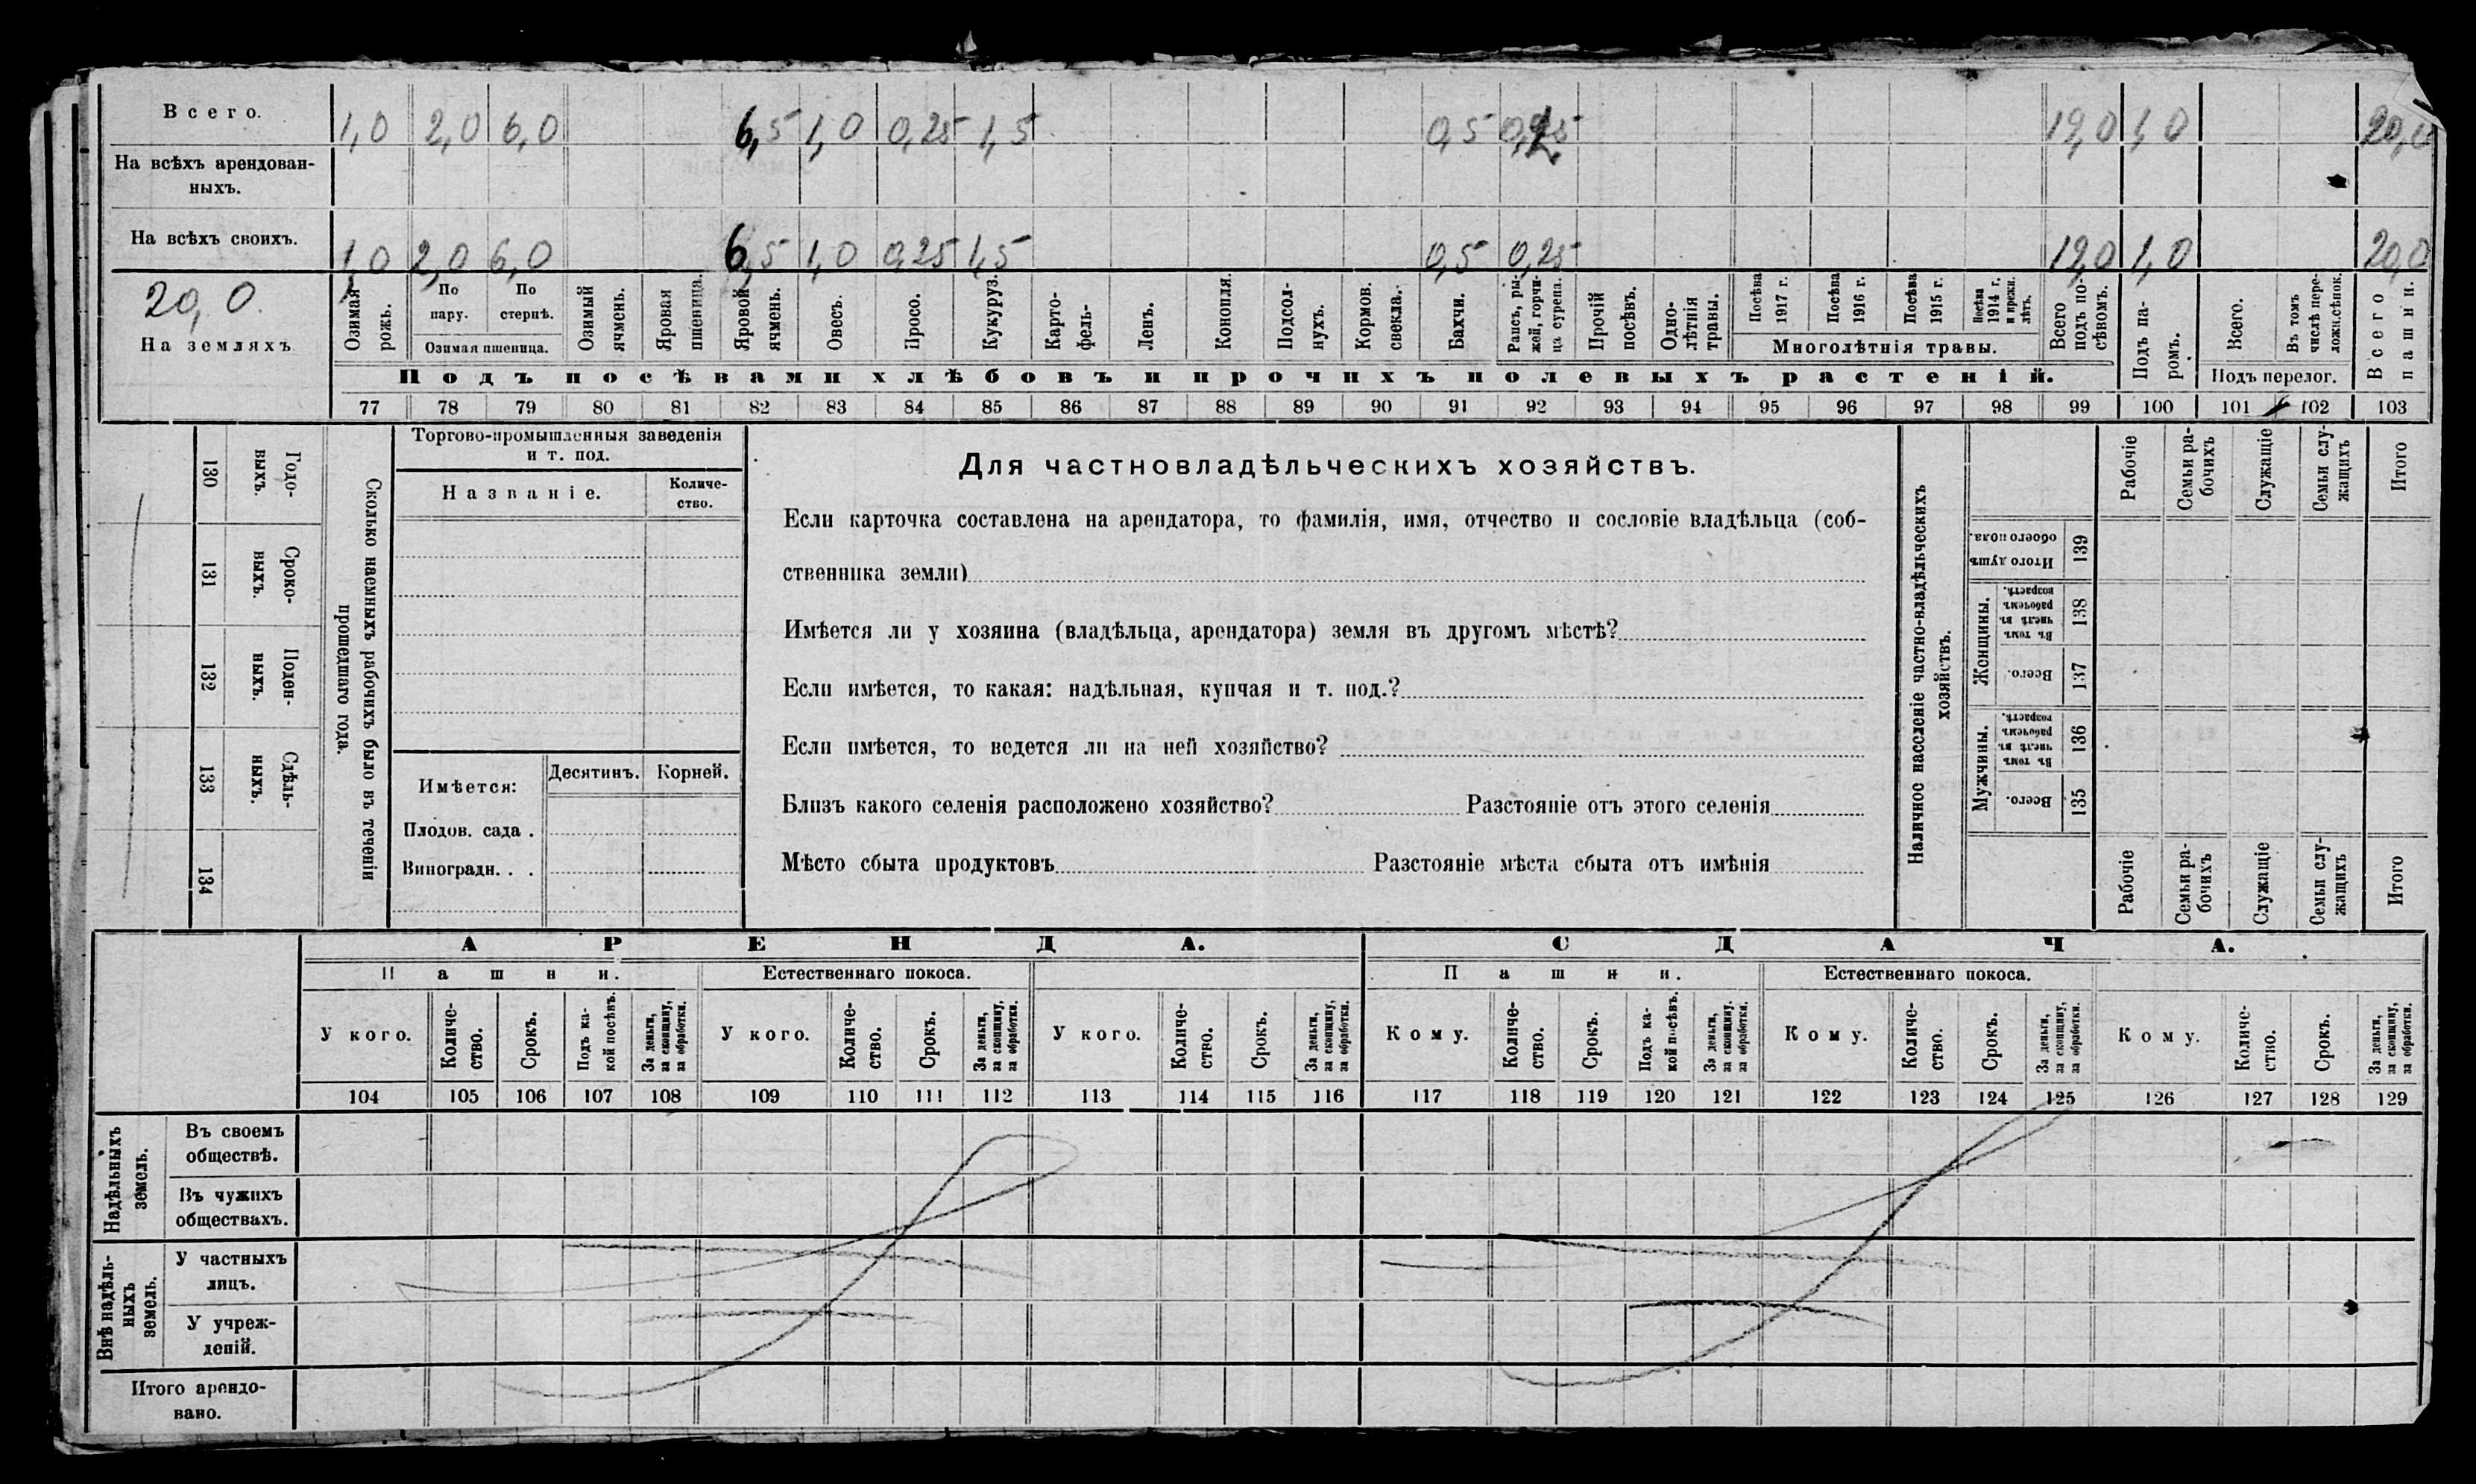 Всего. 1,0 2,0 6,0 6,5 1,0 0,25 1,5 0,5 19,0 1,0 20,0
На всѣхъ арендован-
ныхъ.
На всѣхъ своихъ. 1,0 2,0 6,0 6,5 1,0 0,25 1,5 0,5 0,25 19,0 1,0 20,0
20,0.
На земляхъ
Озимая рожь.
По пару.
По стернѣ.
Озимая пшеница.
Озимый ячмень.
Яровая пшеница.
Яровой ячмень.
Овесъ.
Просо.
Кукуруз.
Карто-
фель-
Ленъ.
Конопля.
Подсол-
нухъ.
Кормов.
свекла.
Бахчи.
Рапсъ, ры-
жей, горчи-
ца сурепа.
Прочій
посѣвъ.
Одно-
лѣтнія
травы.
Посѣва
1917 г.
Посѣва
1916 г.
Посѣва
1915 г.
Посѣва
1914 г.
и прежн.
лѣтъ.
Многолѣтнія травы.
Всего
подъ по-
сѣвомъ.
Подъ па-
ромъ.
Всего.
Въ томъ
числѣ пере-
ложн.сѣнок.
Подъ перелог.
Всего
пашни.
Подъ посѣвами хлѣбовъ и прочихъ полевыхъ растеній.
77 78 79 80 81 82 83 84 85 86 87 88 89 90 91 92 93 94 95 96 97 98 99 100 101 102 103
130 Годо-
выхъ.
131 Сроко-
ныхъ.
132 Поден-
ныхъ.
133 Сдѣль-
ныхъ.
134
Сколько наемныхъ рабочихъ было въ теченіи
прошедшаго года.
Торгово-промышленныя заведенія
и т. под.
Названіе.
Количе-
ство.
Имѣется:
Десятинъ. Корней.
Плодов. сада .
Виноградн. . .
Для частновладѣльческихъ хозяйствъ.
Если карточка составлена на арендатора, то фамилія, имя, отчество и сословіе владѣльца (соб-
ственника земли)
Имѣется ли у хозяина (владѣльца, арендатора) земля въ другомъ мѣстѣ?
Если имѣется, то какая: надѣльная, купчая и т. под.?
Если имѣется, то ведется ли на ней хозяйство?
Близъ какого селенія расположено хозяйство? Разстояніе отъ этого селенія
Мѣсто сбыта продуктовъ Разстояніе мѣста сбыта отъ имѣнія
Наличное населеніе частно-владѣльческихъ
хозяйствъ.
Рабочіе
Семьи ра-
бочихъ
Служащіе
Семьи слу-
жащихъ
Итого
Итого душъ
обоего пола.
139
Женщины.
Въ томъ
числѣ въ
рабочемъ
возрастѣ.
138
Всего.
137
Мужчины.
Въ томъ
числѣ въ
рабочемъ
возрастѣ.
136
Всего.
135
Рабочіе
Семьи ра-
бочихъ
Служащіе
Семьи слу-
жащихъ
Итого
АРЕНДА. СДАЧА.
Пашни. Естественнаго покоса. Пашни. Естественнаго покоса.
У кого.
Количе-
ство.
Срокъ.
Подъ ка-
кой посѣвъ.
За деньги,
за скопщину,
за обработки.
У кого.
Количе-
ство.
Срокъ.
За деньги,
за скопщину,
за обработки.
У кого.
Количе-
ство.
Срокъ.
За деньги,
за скопщину,
за обработки.
Кому.
Количе-
ство.
Срокъ.
Подъ ка-
кой посѣвъ.
За деньги,
за скопщину.
за обработки.
Кому.
Количе-
ство.
Срокъ.
За деньги,
за скопщину,
за обработки.
Кому.
Количе-
ство.
Срокъ.
За деньги,
за скопщину,
за обработки.
104 105 106 107 108 109 110 111 112 113 114 115 116 117 118 119 120 121 122 123 124 125 126 127 128 129
Надѣльныхъ
земель.
Въ своемъ
обществѣ.
Въ чужихъ
обществахъ.
Внѣ надѣль-
ныхъ
земель.
У частныхъ
лицъ.
У учреж-
деній.
Итого арендо-
вано.